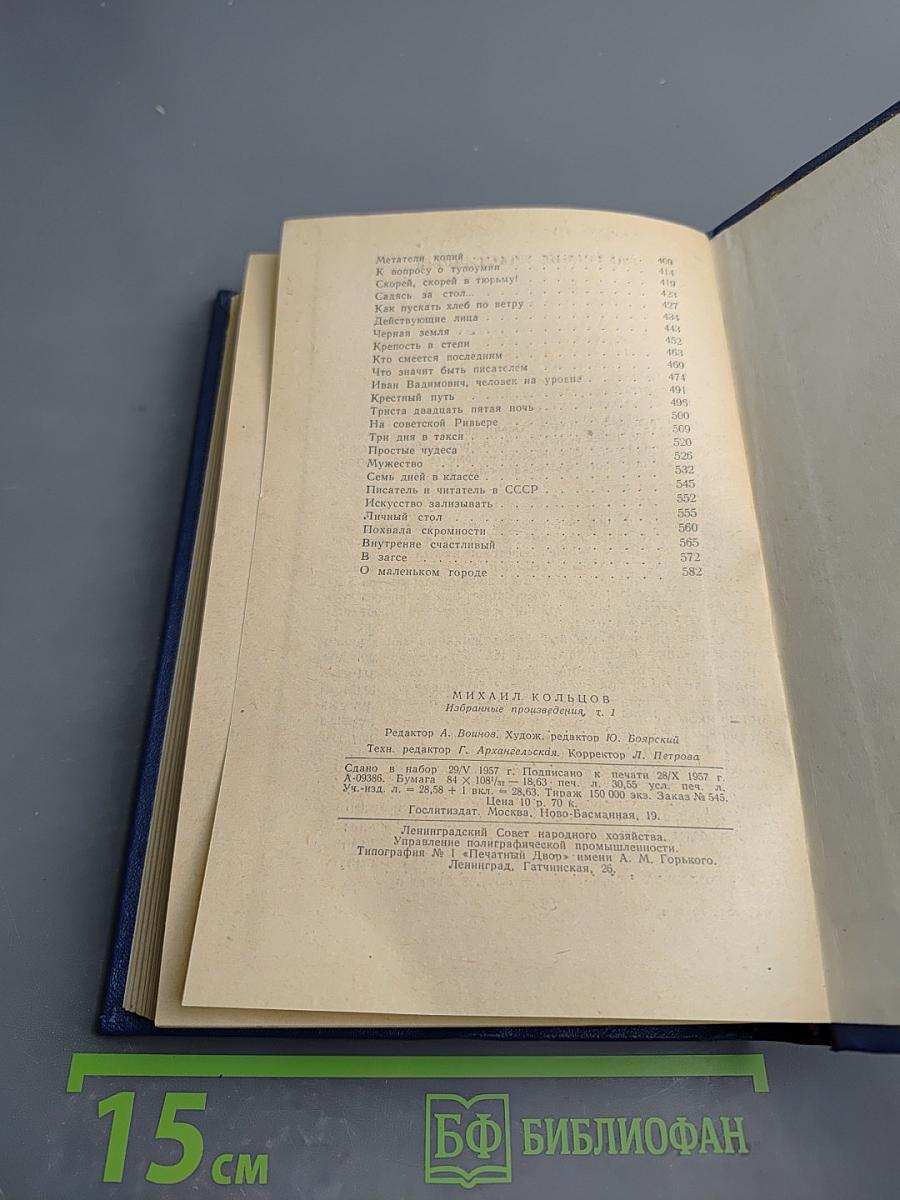 Метатели копий . 409
К вопросу о тупоумии . . . . . . . . . . 414
Скорей, скорей в тюрьму! . . . . . . . . 419
Садясь за стол... . . . . . . . . . . . 423
Как пускать хлеб по ветру . . . . . . . . 427
Действующие лица . . . . . . . . . . . 434
Черная земля . . . . . . . . . . . . . 443
Крепость в степи . . . . . . . . . . . 452
Кто смеется последним . . . . . . . . . 463
Что значит быть писателем . . . . . . . . 469
Иван Вадимович, человек на уровне . . . . . 474
Крестный путь . . . . . . . . . . . . 491
Триста двадцать пятая ночь . . . . . . . . 496
На советской Ривьере . . . . . . . . . . 500
Три дня в такси . . . . . . . . . . . 509
Простые чудеса . . . . . . . . . . . . 520
Мужество . . . . . . . . . . . . . . 526
Семь дней в классе . . . . . . . . . . 532
Писатель и читатель в СССР . . . . . . . . 545
Искусство зализывать . . . . . . . . . . 552
Личный стол . . . . . . . . . . . . . 555
Похвала скромности . . . . . . . . . . 560
Внутренне счастливый . . . . . . . . . . 565
В загсе . . . . . . . . . . . . . . 572
О маленьком городе . . . . . . . . . . 582
МИХАИЛ КОЛЬЦОВ
Избранные произведения, т. 1
Редактор А. Воинов. Худож. редактор Ю. Боярский
Техн. редактор Г. Архангельская. Корректор Л. Петрова
Сдано в набор 29/V 1957 г. Подписано к печати 28/X 1957 г.
А-09386. Бумага 84 × 108¹/₃₂ — 18,63 печ. л. 30,55 усл. печ. л.
Уч.-изд. л. = 28,58 + 1 вкл. = 28,63. Тираж 150 000 экз. Заказ № 545.
Цена 10 р. 70 к.
Гослитиздат. Москва, Ново-Басманная, 19.
Ленинградский Совет народного хозяйства.
Управление полиграфической промышленности.
Типография № 1 «Печатный Двор» имени А. М. Горького.
Ленинград, Гатчинская, 26.
15 см
БФ БИБЛИОФАН